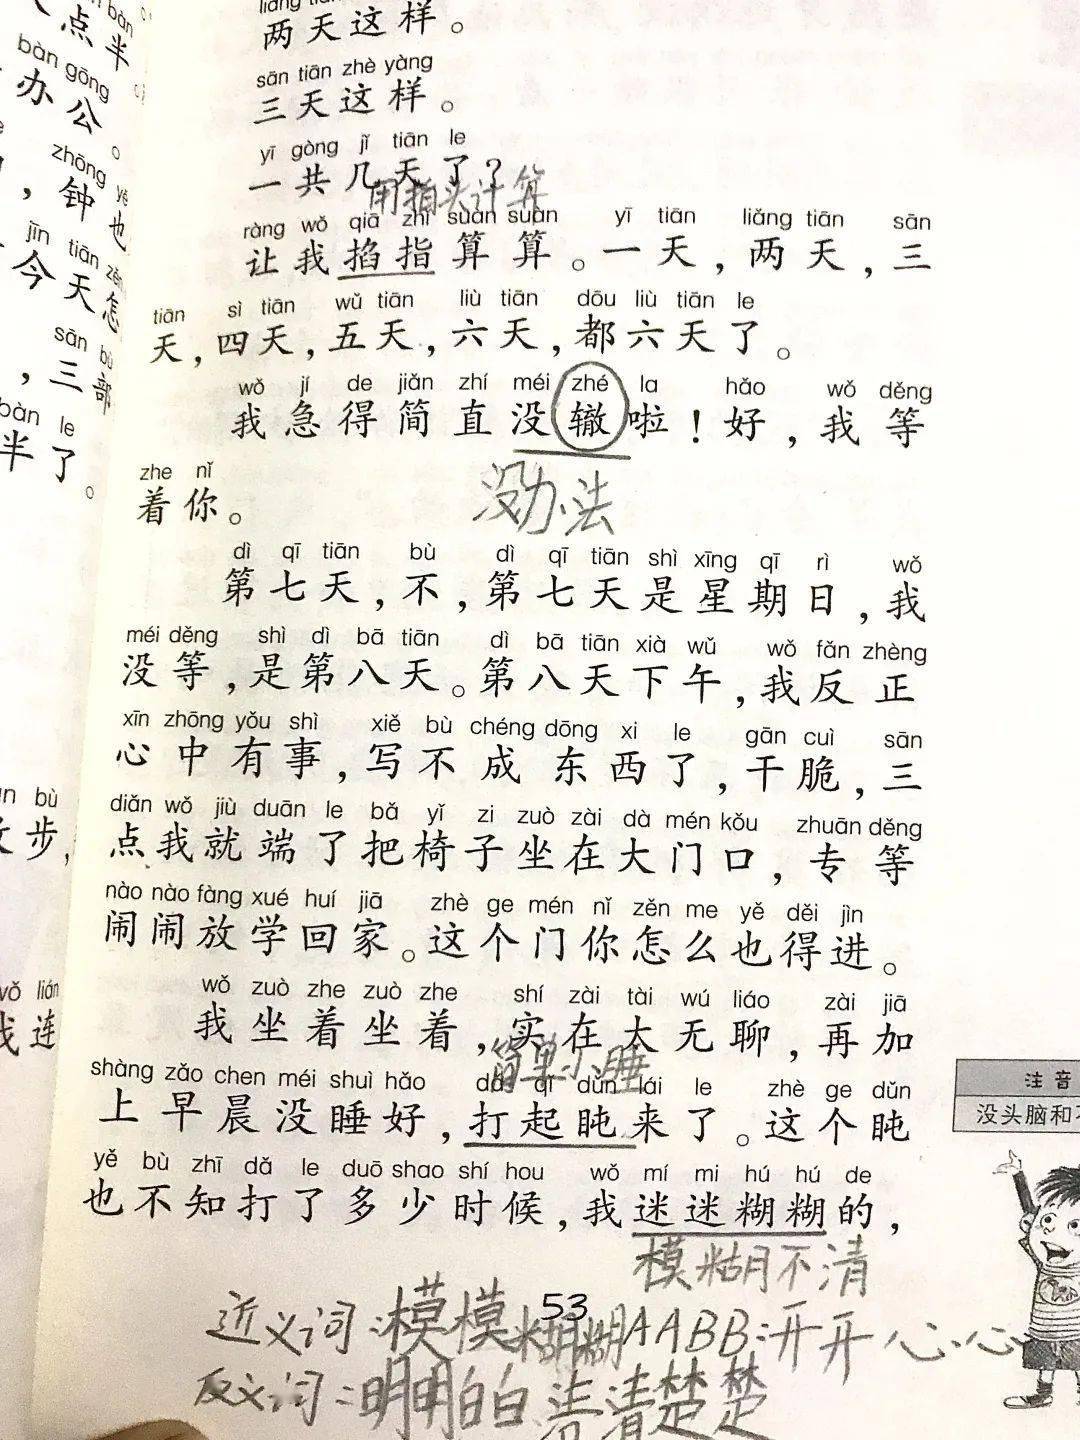 bàn
点半
bàn gōng
办公。
zhōng yě
，钟也
jīn tiān zěn
今天怎
sān bù
，三部
bàn le
半了。
bù
步，
wǒ lián
我连
liǎng tiān
两天这样。
sān tiān zhè yàng
三天这样。
yī gòng jǐ tiān le
一共几天了？
用指头计算
ràng wǒ qiā zhǐ suàn suàn yī tiān liǎng tiān sān
让我掐指算算。一天，两天，三
tiān sì tiān wǔ tiān liù tiān dōu liù tiān le
天，四天，五天，六天，都六天了。
wǒ jí de jiǎn zhí méi zhé la hǎo wǒ děng
我急得简直没辙啦！好，我等
zhe nǐ
着你。
没办法
dì qī tiān bù dì qī tiān shì xīng qī rì wǒ
第七天，不，第七天是星期日，我
méi děng shì dì bā tiān dì bā tiān xià wǔ wǒ fǎn zhèng
没等，是第八天。第八天下午，我反正
xīn zhōng yǒu shì xiě bù chéng dōng xi le gān cuì sān
心中有事，写不成东西了，干脆，三
diǎn wǒ jiù duān le bǎ yǐ zi zuò zài dà mén kǒu zhuān děng
点我就端了把椅子坐在大门口，专等
nào nào fàng xué huí jiā zhè ge mén nǐ zěn me yě děi jìn
闹闹放学回家。这个门你怎么也得进。
wǒ zuò zhe zuò zhe shí zài tài wú liáo zài jiā
我坐着坐着，实在太无聊，再加
简单小睡
shàng zǎo chen méi shuì hǎo dǎ qǐ dǔn lái le zhè ge dǔn
上早晨没睡好，打起盹来了。这个盹
yě bù zhī dǎ le duō shao shí hou wǒ mí mi hú hú de
也不知打了多少时候，我迷迷糊糊的，
模糊不清
53
近义词：模模糊糊AABB：开开心心
反义词：明明白白 清清楚楚
注音
没头脑和不